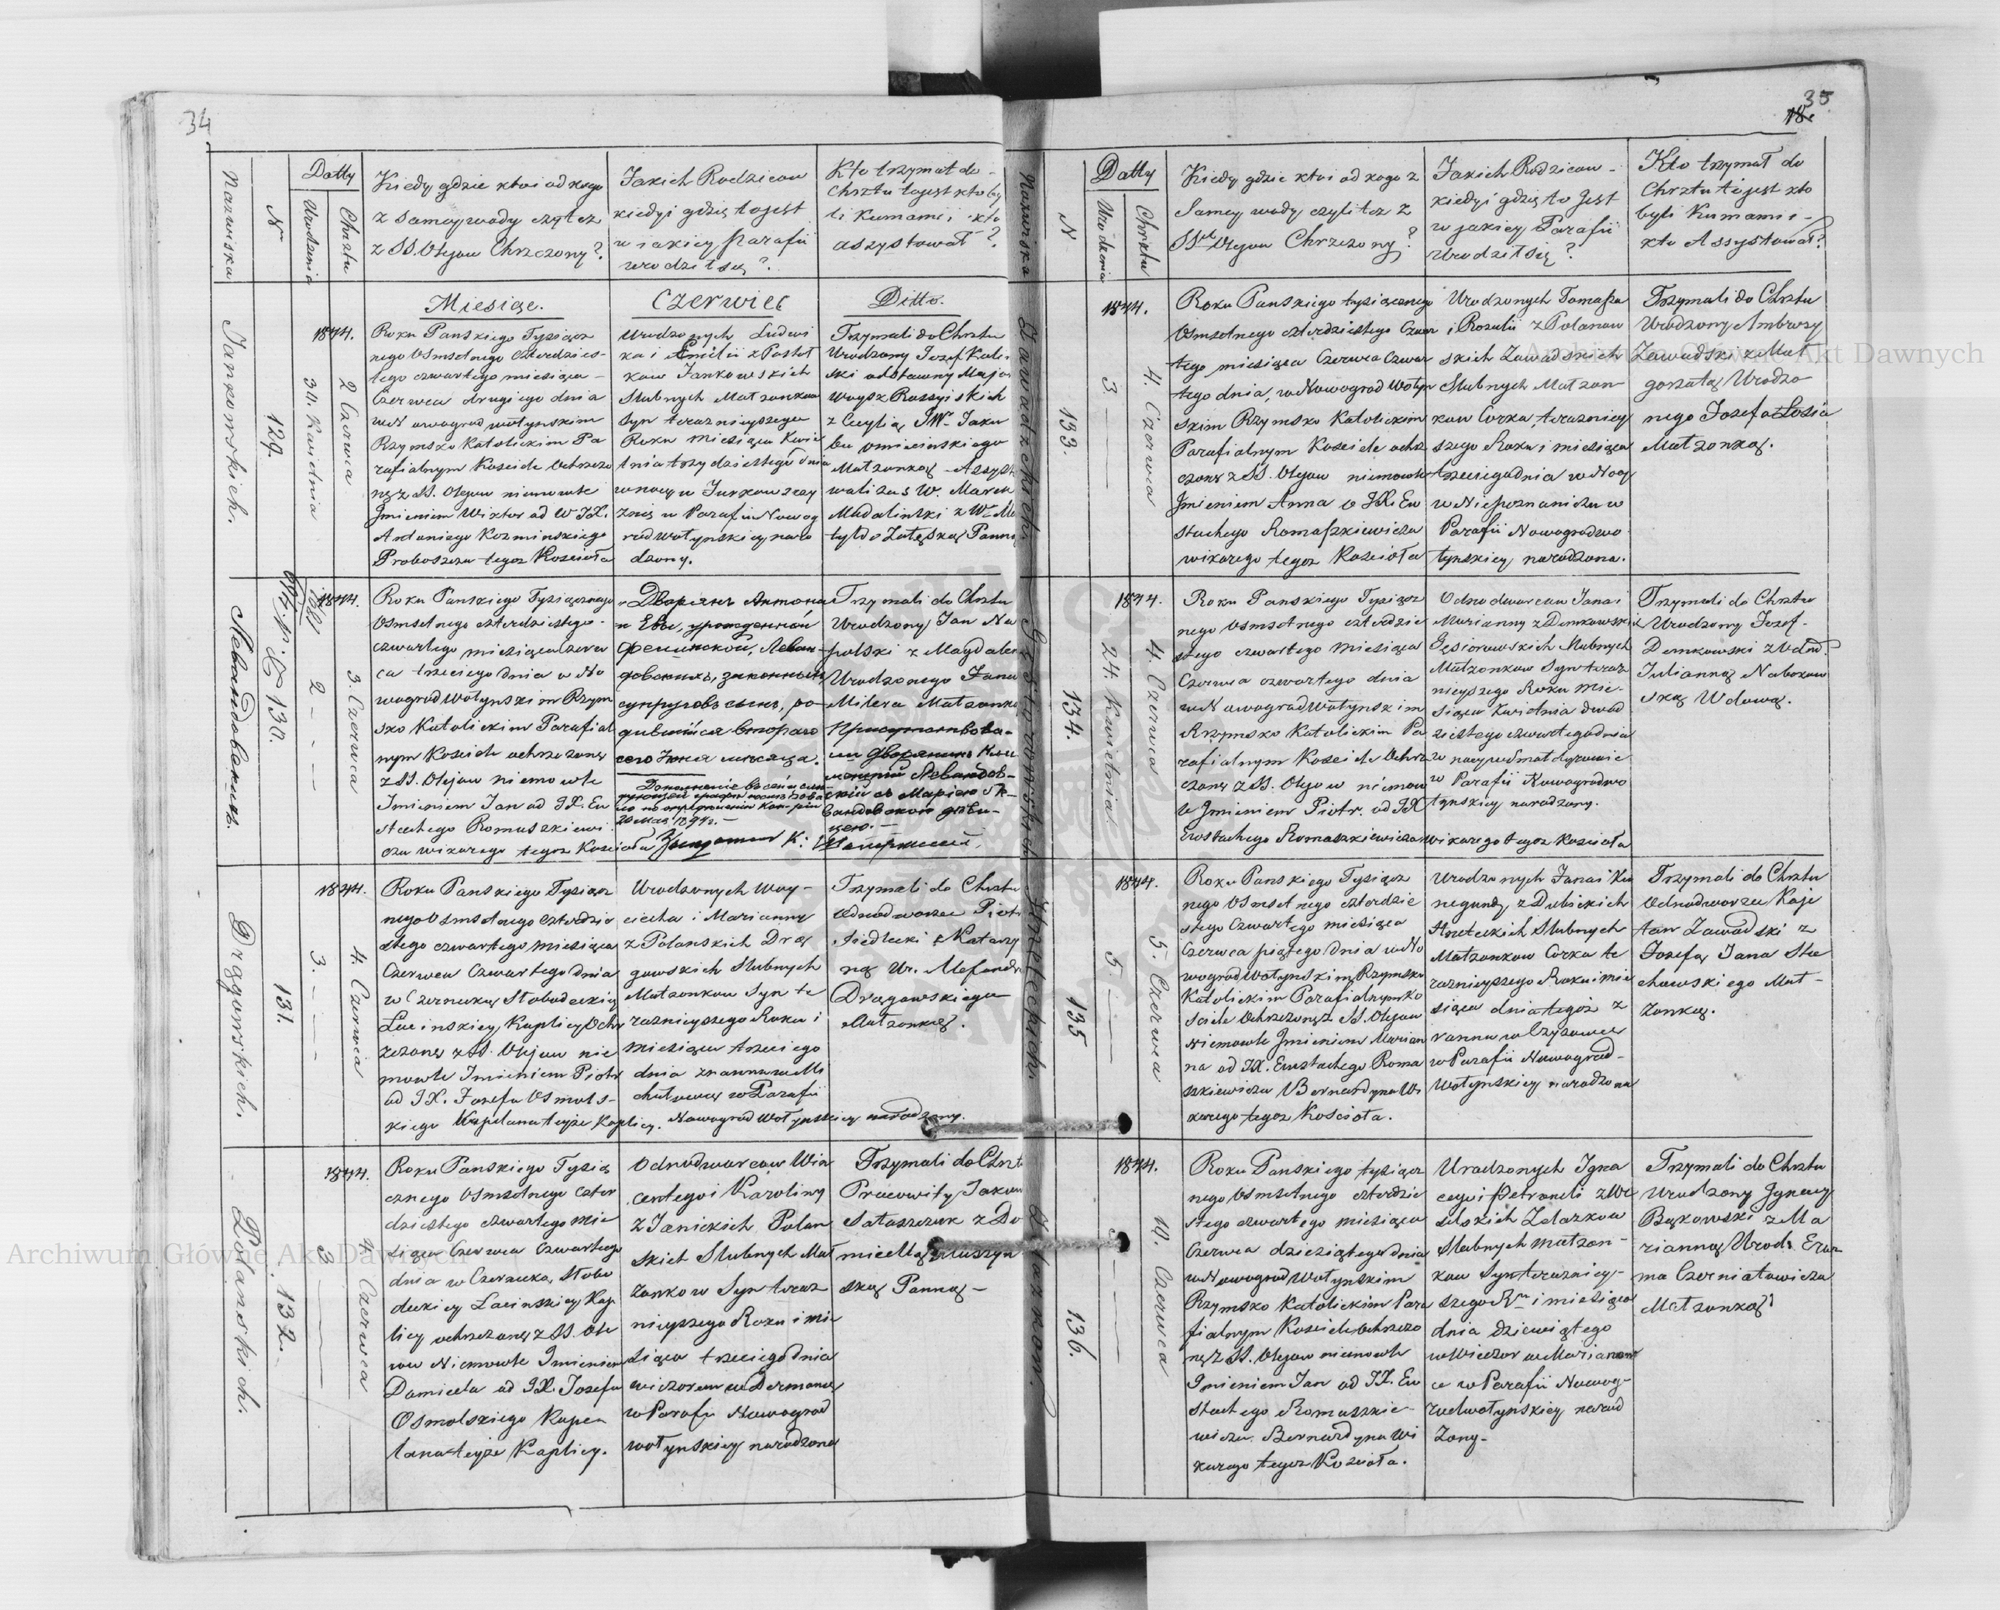 34
Nazwiska
N
Datty
Urodzenia
Chrztu
Kiedy gdzie kto i od kogo
z samey wody czy też
z SS. Olejow Chrzczony?
Jakich Rodzicow
kiedy i gdzie to jest
w jakiey Parafii
urodził się?
Kto trzymał do
Chrztu to jest kto by
li Kumami, i kto
assystował?
Miesiąc.
Czerwiec
Ditto.
Jankowskich.
129.
1844.
30. Kwietnia
2 Czerwca
Roku Panskiego Tysiącz
nego Osmsetnego czterdzies-
tego czwartego miesiąca
Czerwca drugiego dnia
w Nowogrod wołynskim
Rzymsko Katolickim Pa
rafialnym Kosciele Ochrzco
nę z SS. Olejow niemowle
Jmieniem Wiktor od W JX.
Antoniego Kozminskiego
Proboszcza tegoż Kościoła
Urodzonych Ludwi
ka i Emilii z Postoł
kow Jankowskich
Slubnych Małzonkow
Syn teraznieyszego
Roku miesiąca Kwie
tnia trzydziestego dnia
w nocy w Jurkowszczy
znie w Parafii Nowog
rodwołynskiey naro
dzony.
Trzymali do Chrztu
Urodzony Jozef Kali
ski odstawny Major
Woysk Rossyiskich
z Cecylią JW. Jaku
ba Omiecinskiego
Małzonką. Assyst
wali zas W. Marek
Madalinski z W. Ma
tyldą Załęską Panną
130.
1844.
2
3. Czerwca
Roku Panskiego Tysiącznego
Osmsetnego czterdziestego
czwartego miesiąca Czerw
ca trzeciego dnia w No
wogrod Wołynskim Rzym
sko Katolickim Parafial
nym Kosciele ochrzczony
z SS. Olejow niemowle
Imieniem Jan od JX. Eu
stachego Romaszkiewi
cza wikarego tegoż Kościoła
Дворянъ Антона
и Евы, урожденной
законныхъ
супруговъ сынъ, ро-
дившійся втораго
сего Іюня мѣсяца.
Trzymali do Chrztu
Urodzony Jan Na
polski z Magdaleną
Urodzonego Jana
Milera Małzonką
Drągowskich.
131.
1844.
3.
4. Czerwca
Roku Panskiego Tysiącz
nego Osmsetnego Czterdzie
stego czwartego miesiąca
Czerwca Czwartego dnia
w Czernicką Słobodeckiey
Łacinskiey Kaplicy Ochrz
czony z SS. Olejow nie
mowle Imieniem Piotr
od JX. Jozefa Osmols-
kiego Kapelana teyże Kaplicy.
Urodzonych Woy-
ciecha i Marianny
z Polanskich Drą
gowskich Slubnych
Małzonkow Syn te
raznieyszego Roku i
miesiąca trzeciego
dnia z rana w Mi
chałowce w Parafii
Nowogrod Wołynskiey narodzony.
Trzymali do Chrztu
Odnodworzec Piotr
Siedlecki z Katarzy
ną Ur. Alexandra
Drągowskiego
Małzonką.
Polanskich.
132.
1844.
3
4 Czerwca
Roku Panskiego Tysią
cznego Osmsetnego Czter
dziestego czwartego mie
siąca Czerwca Czwartego
dnia w Czernicką Słobo
deckiey Łacinskiey Kap
licy ochrzczony z SS. Ole
jow Niemowle Imieniem
Daniela od JX. Jozefa
Osmolskiego Kapen
lana teyże Kaplicy.
Odnodworcow Win
centego i Karoliny
z Janickich Polan
skich Slubnych Mał
zonkow Syn teraz
nieyszego Roku i mie
siąca trzeciego dnia
wieczorem w Dermance
w Parafii Nowogrod
wołynskiey narodzona
Trzymali do Chrztu
Pracowity Jakow
Sataszczuk z Do
micellą
ską Panną
35
18.
Nazwiska
N
Datty
Urodzenia
Chrztu
Kiedy gdzie kto i od kogo z
Samey wody czyli też z
SSch Olejow Chrzczony?
Jakich Rodzicow
kiedy i gdzie to jest
w jakiey Parafii
Urodził się?
Kto trzymał do
Chrztu to jest kto
byli Kumami i
kto Assystował?
Zawadzkich.
133.
1844.
3
4. Czerwca
Roku Panskiego tysiącznego
Osmsetnego czterdziestego Czwar
tego miesiąca Czerwca Czwar
tego dnia, w Nowogrod Wołyn
skim Rzymsko Katolickim
Parafialnym Kosciele ochrz
czono z SS. Olejow niemowle
Jmieniem Anna o JX. Eu
stachego Romaszkiewicza
wikarego tegoż Kościoła
Urodzonych Tomasza
i Rozalii z Polanow
skich Zawadskich
Slubnych Małzon
kow Corka terazniey
szego Roku i miesiąca
trzeciego dnia w Nocy
w Niepoznaniczu w
Parafii Nowogrodwo
łynskiey narodzona.
Trzymali do Chrztu
Urodzony Ambrozy
Zawadski z Mał
gorzatą Urodzo
nego Jozefa Łosia
Małzonką.
134.
1844.
24. Kwietnia
4. Czerwca
Roku Panskiego Tysiącz
nego Osmsetnego czterdzie
stego czwartego miesiąca
Czerwca czwartego dnia
w Nowogrod Wołynskim
Rzymsko Katolickim Pa
rafialnym Kosciele Ochrz
czony z SS. Olejow niemow
le Jmieniem Piotr. od JX
Eustachego Romaszkiewicza wikarego tegoż Kościoła
Odnodworcow Jana i
Marianny z Demkowskich
Gąsiorowskich Slubnych
Małzonkow Syn teraz
nieyszego Roku Mie
siąca Kwietnia dwud
ziestego czwartego dnia
w Parafii Nowogrodwo
łynskiey narodzony.
Trzymali do Chrztu
Urodzony Jozef
Demkowski z Urod.
Julianną Nabokow
ską Wdową.
135
1844.
5
5. Czerwca
Roku Panskiego Tysiącz
nego Osmsetnego czterdzie
stego Czwartego miesiąca
Czerwca piątego dnia w No
wogrod Wołynskim Rzymsko
Katolickim Parafialnym Ko
sciele Ochrzczono z SS. Olejow
Niemowle Jmieniem Marian
na od JX. Eustachego Roma
szkiewicza Bernardyna Wi
karego tegoż Kościoła.
Urodzonych Jana i Ku
negundy z Dubickich
Strzeleckich Slubnych
Małzonkow Corka te
raznieyszego Roku i mie
siąca dnia tegoż z
ranna w Czyżowce
w Parafii Nowogrod-
Wołynskiey narodzona
Trzymali do Chrztu
Odnodworzec Kaje
tan Zawadski z
Jozefą Jana Sta
chowskiego Mał-
zonką.
136.
1844.
10. Czerwca
Roku Panskiego tysiącz
nego Osmsetnego czterdzie
stego czwartego miesiąca
Czerwca dziesiątego dnia
w Nowogrod Wołynskim
Rzymsko Katolickim Para
fialnym Kosciele ochrzczo
ny z SS. Olejow niemowle
Imieniem Jan od JX. Eu
stachego Romaszkie-
wicza Bernardyna Wi
karego tegoż Kościoła.
Urodzonych Igna
cego i Petroneli z We
selskich Zelazkow
Slubnych małzon-
kow Syn teraźniey-
szego Rku i miesiąca
dnia dziewiątego
w Wieczor w Marianow
ce w Parafii Nowog-
rodwołynskiey narod
zony.
Trzymali do Chrztu
Urodzony Ignacy
Bąkowski z Ma
rianną Urod. Eraz
ma Czerniatowicza
Małzonką
Archiwum Główne Akt Dawnych
Archiwum Główne Akt Dawnych